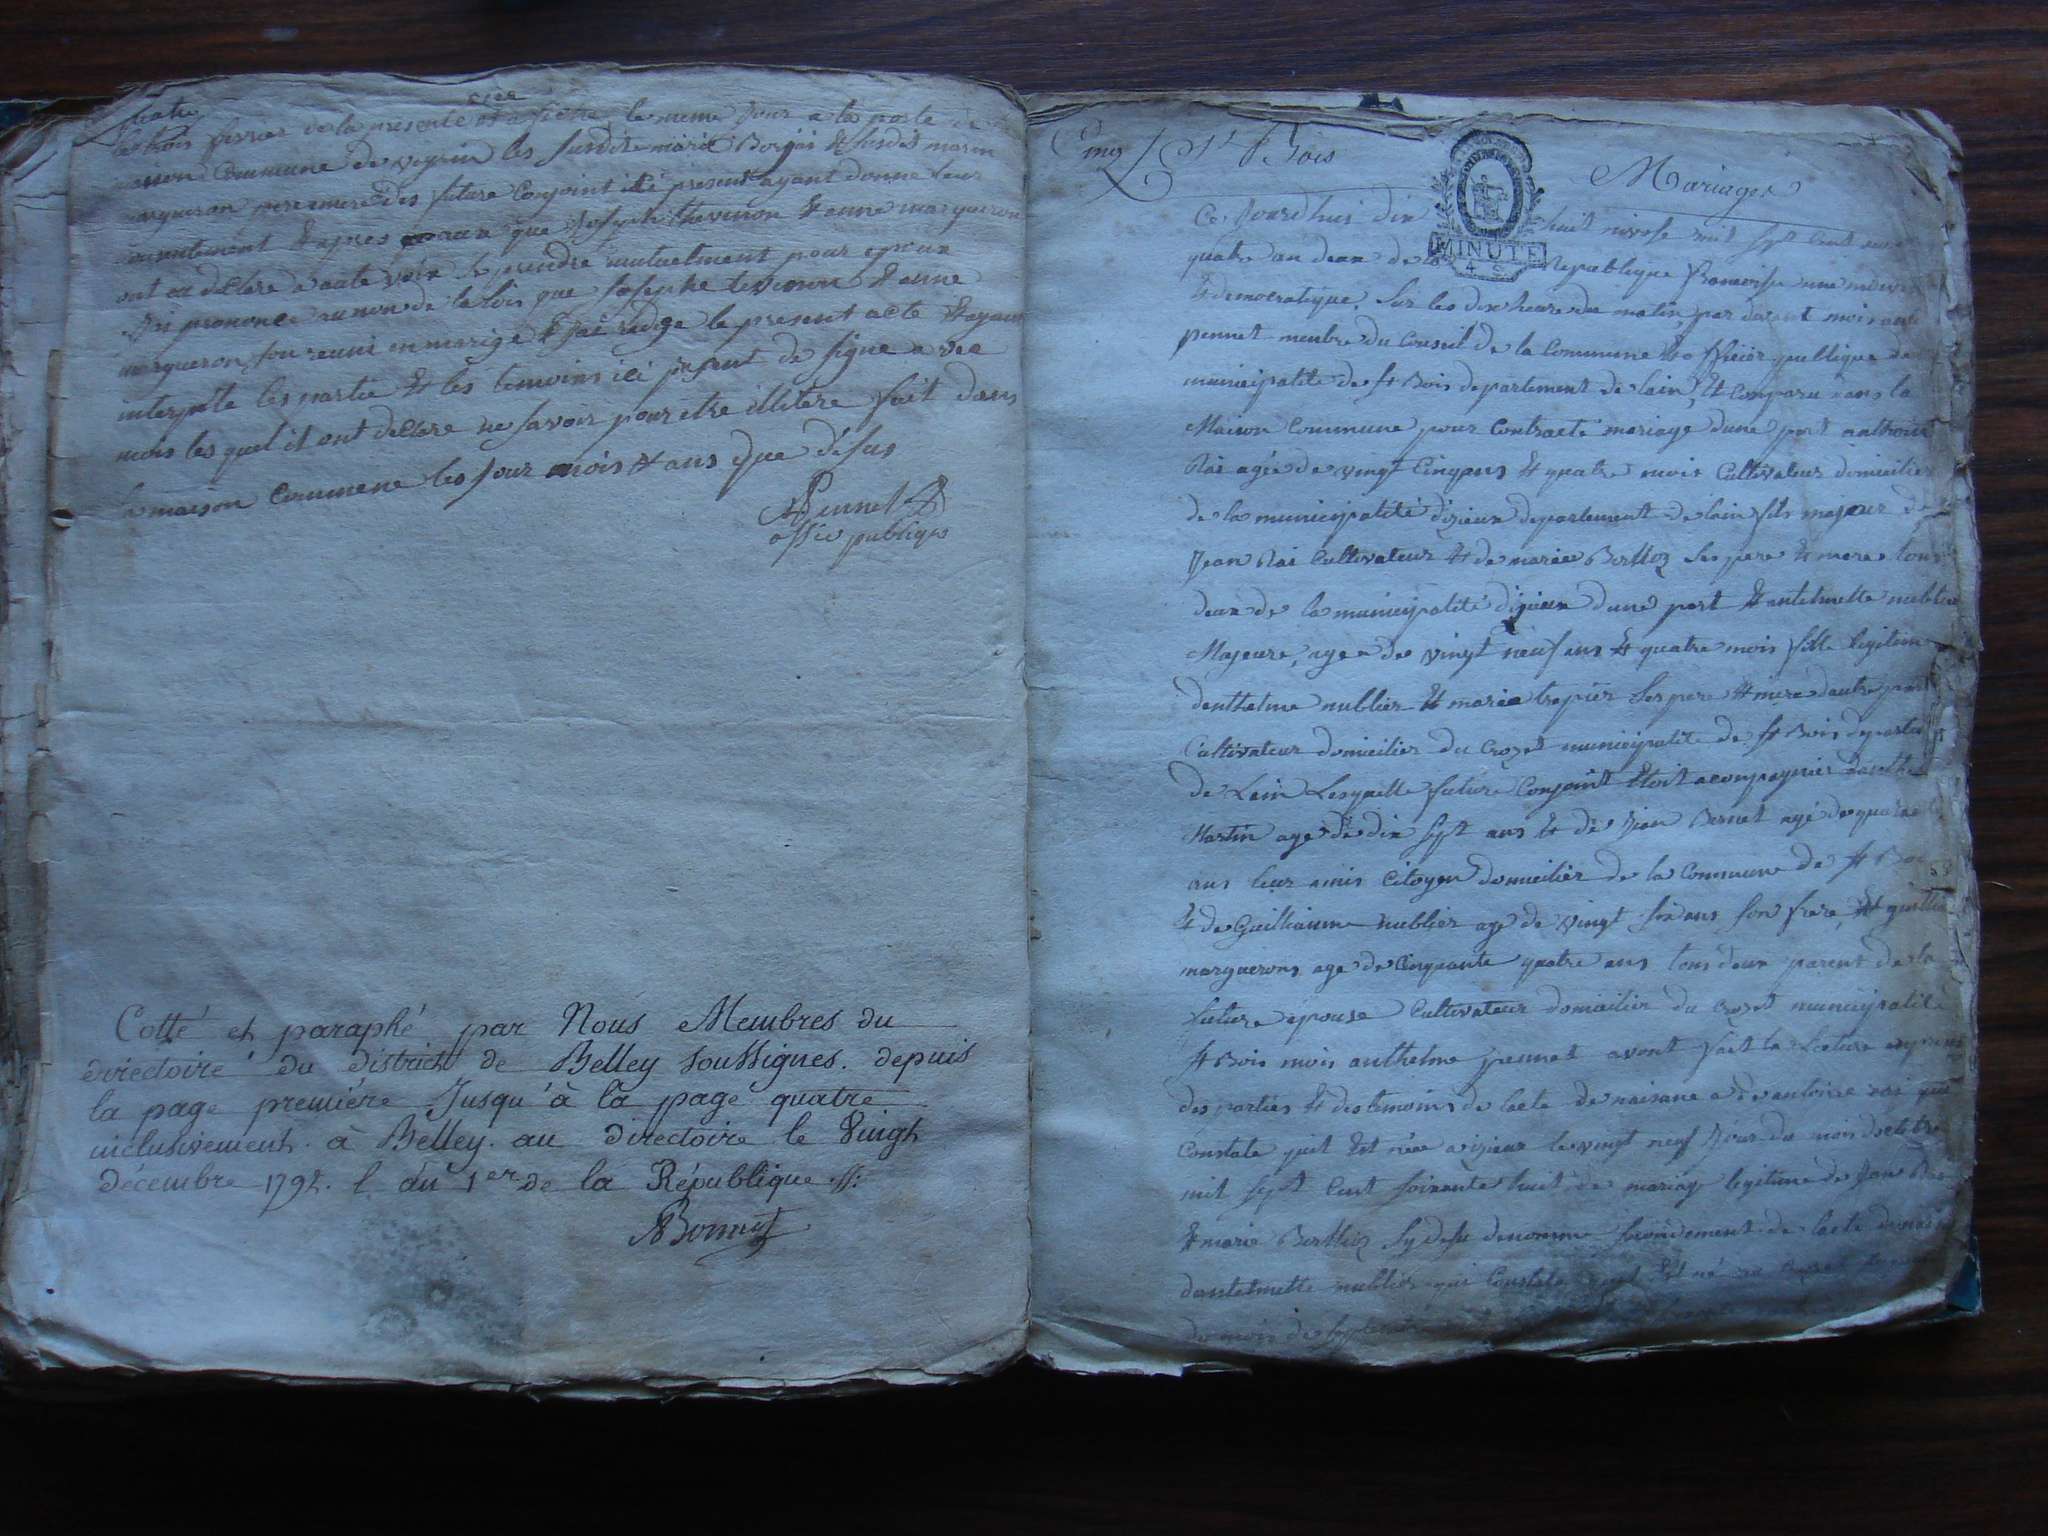 quatre
maison Commune de veyrin les susdits marie Borjai & susdit marin
margueron pere & mere des future Conjoint ici present ayant donne leur
& apres que Joseph thevenon & anne margueron
ont declare a aute voix se prendre mutuelment pour epoux
prononce au nom de la lois que Josephe tevenon & anne
margueron son reuni en marige & jai redige le present acte & ayant
interpelle les partie & les temoins ici present de signe avec
mois les quel il ont declare ne savoir pour etre illitere fait dans
la maison Commune les jour mois & ans que desus
Pennet
offic publique
Cotté et paraphé par Nous Membres du
directoire du district de Belley soussignes. depuis
la page première Jusqu'à la page quatre
inclusivement. à Belley. au directoire le Vingt
décembre 1792. l an 1er de la République
Bonnet
Cinq
St Bois
Mariages
Ce Jourdhui dix huit nivose mil sept Cent
MINUTE
4 S
quatre an deux de la Republique francoise une
& democratique, sur les dix heure du matin, par devant moi
pennet menbre du Conseil de la Commune & officier publique de
municipalite de st Bois departement de lain, & Comparu dans la
Maison Commune pour Contracté mariage dune part anthoine
Rai agée de vingt Cinq ans & quatre mois Cultivateur domicilie
de la municipalité dizieux departement de lain fils majeur de
Jean Rai Cultivateur & de marie Berthoz ses pere & mere tous
deux de la municipalité dizieux dune part & antelmette nublier
Majeure, agee de vingt neuf ans & quatre mois fille legitime
danthelme nublier & marie trapier ses pere & mere dautre part
Cultivateur domicilier du Crozet municipalite de st Bois
de Lain Lesquelle future Conjoint etoit acompagnier
Martin age de dix sept ans & de Jean Bernet agé de quatre
ans leur amis Citoyen domicilier de la Commune de st Bois
& de Guilliaume nublier age de vingt six ans son frere, &
marguerons age de Cinquante quatre ans tous deux parent de la
future epouse Cultivateur domicilier du Crozet municipalité
st Bois mois anthelme pennet avont fait la Lecture
des parties & des temoins de lacte de naisane de antoine rai qui
Constate quil est née a izieux le vingt neuf Jour du mois doctobre
mil sept Cent soixante huit de mariage legitime de Jean Rai
& marie Berthoz sy desu denomme secondement de lacte de
dantelmette nublier qui Constate quel est né au Crozet
du mois de septembre